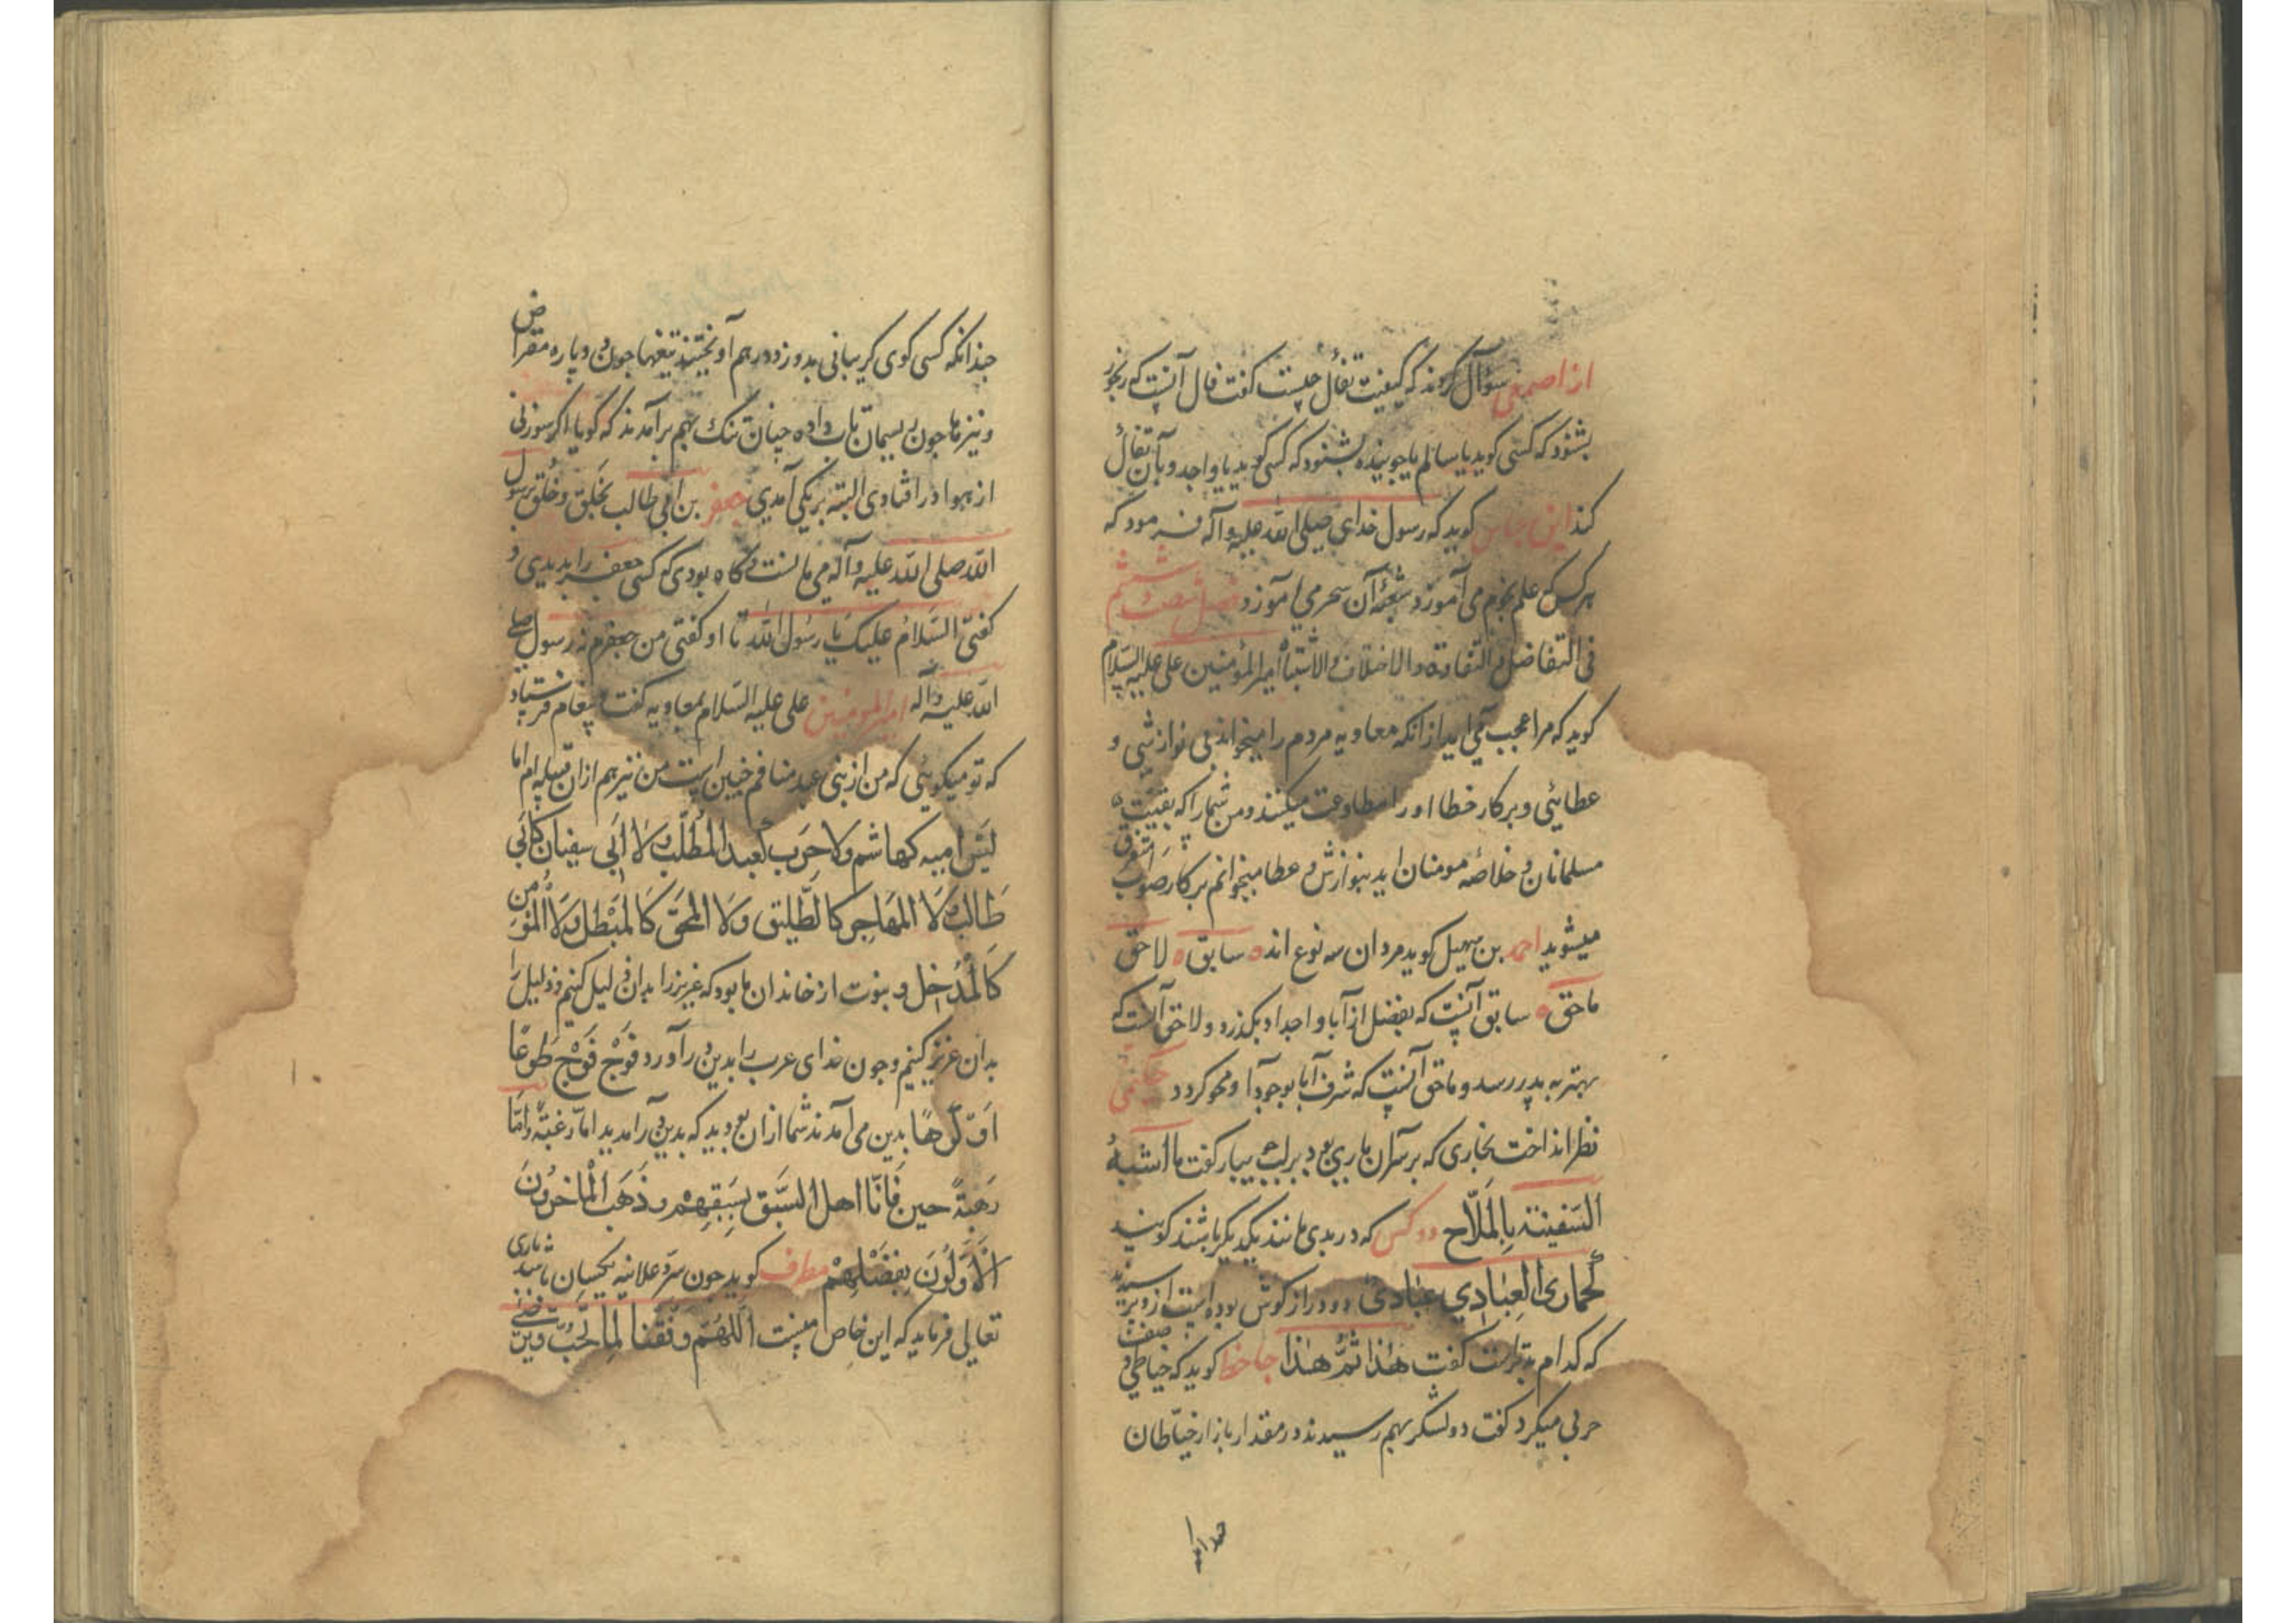 از اصمعی سؤال کردند که کیفیت تفأل چیست کفت فال آنست که رنجور
بشنود که کسی کوید یا سالم یا جوینده بشنود که کسی کوید یا واجد و بآن تفأل
کند ابن عباس کوید که رسول خدای صلی الله علیه و آله فرمود که
هرکس علم نجوم می آموزد شعبهٔ آن سحر می آموزد فصل شصت و ششم
فی التفاضل و التفاوة و الاختلاف و الاشتباه امیرالمؤمنین علی علیه السلام
کوید که مرا عجب می آید از آنکه معاویه مردم را میخواند بی نوازشی و
عطایئی و بر کار خطا او را مطاوعت میکنند و من شما را که بقیت
مسلمانان و خلاصهٔ مومنان اید بنوازش و عطا میخوانم بر کار صواب متفرق
میشوید احمد بن سهیل کوید مردان سه نوع اند سابق لاحق
ماحق سابق آنست که بفضل از آبا و اجداد بکذرد و لاحق آنست که
بهتر به پدر رسد و ماحق آنست که شرف آبا بوجود او محو کردد حکیمی
نظر انداخت بخاری که بر سر آن ماری بود بر لب بیبار کفت ما اشبه
السفینة بالملاح دو کس که در بدی مانند یکدیکر باشند کویند
کحماری العبادی عبادی دو دراز کوش بوده است از و پرسیدند
که کدام بدتر است کفت هذا ثم هذا جاحظ کوید که خیاطی صفت
حربی میکرد کفت دو لشکر بهم رسیدند در مقدار بازار خیاطان
چندانکه کسی کوی کریبانی بدوزد در هم آویختند تیغها چون دو پاره مقراض
و نیزها چون ریسمان تاب داده چنان تنک بهم برآمدند که کویا اکر سوزنی
از هوا در افتادی البته بر یکی آمدی جعفر بن ابی طالب بخلق و خلق برسول
الله صلی الله علیه و آله می مانست و کاه بودی که کسی جعفر را بدیدی و
کفتی السلام علیک یا رسول الله تا او کفتی من جعفرم نه رسول صلی
الله علیه و آله امیرالمومنین علی علیه السلام بمعاویه کفت پیغام فرستاد
که تو میکوئی که من از بنی عبد منافم چنین است من نیز هم از ان قبیله ام اما
لیس امیه کهاشم ولا حرب کعبد المطلب ولا ابی سفیان کابی
طالب ولا المهاجر کالطلیق ولا المحق کالمبطل ولا المؤمن
کالمدخل و نبوت از خاندان ما بود که عزیز را بدان ذلیل کنیم و ذلیل را
بدان عزیز کنیم و چون خدای عرب را بدین درآورد فوج فوج طوعا
او کرها بدین می آمدند شما از ان بودید که بدین درآمدید اما رغبة و اما
رهبة حین فانا اهل السبق بسبقهم و ذهب الماخرون
الاولون بفضلهم مطرف کوید چون سر و علانیه یکسان باشد باری
تعالی فرماید که این خاص منست اللهم وفقنا لما تحب و ترضی